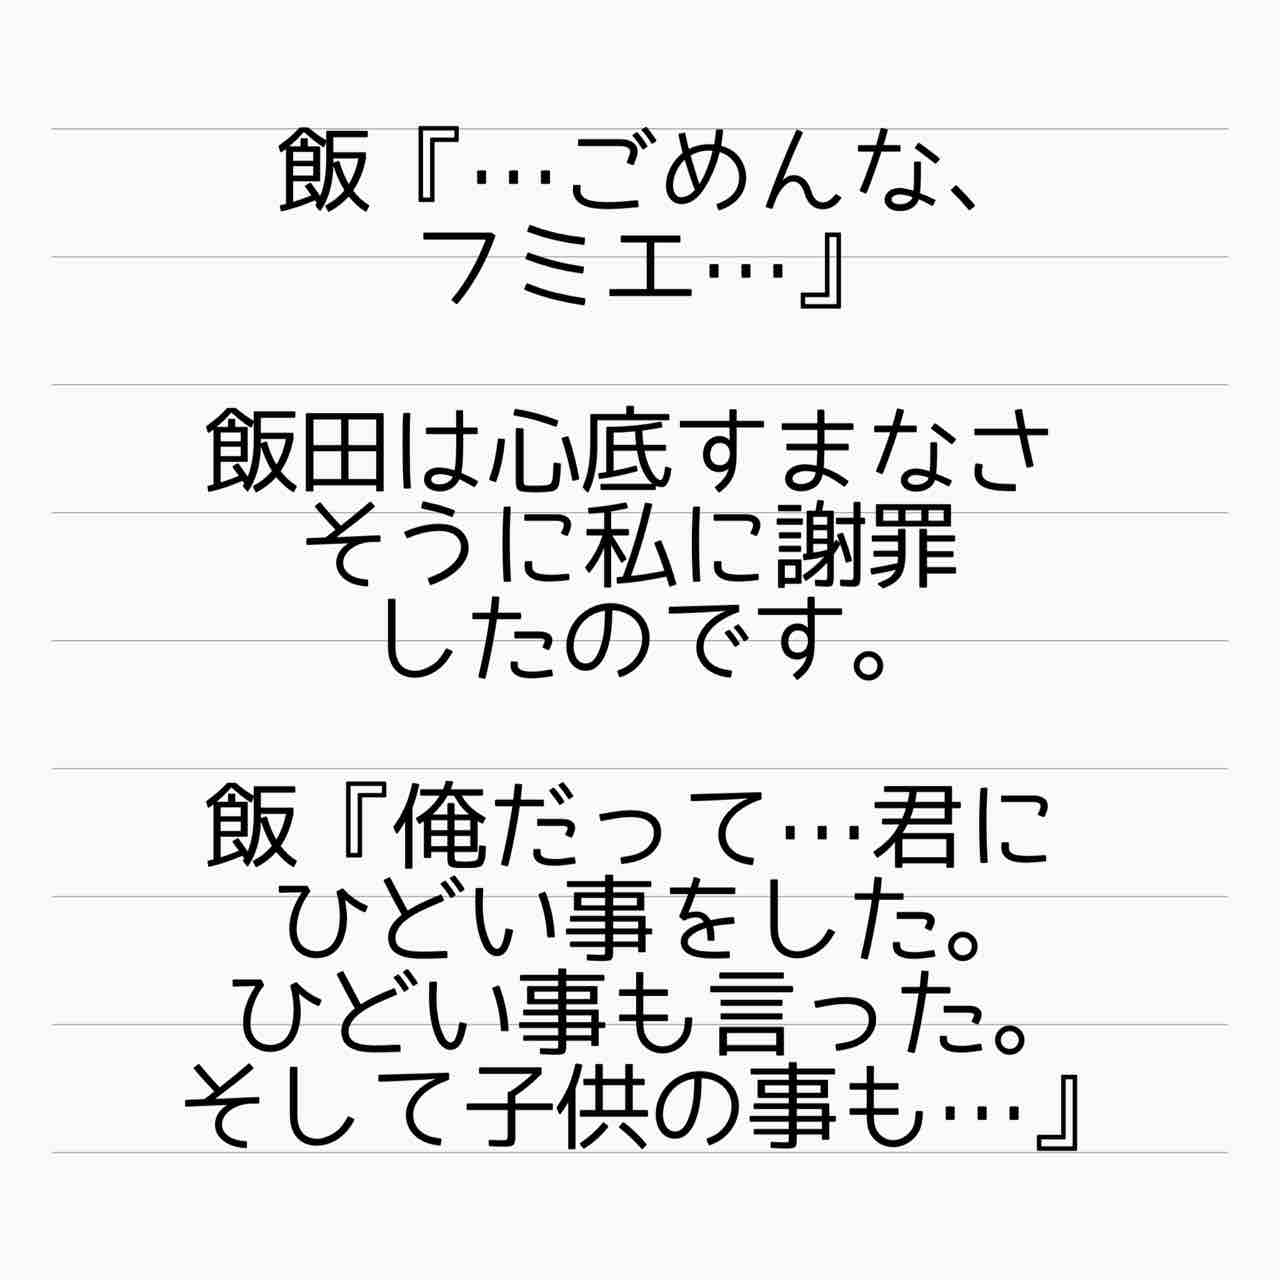 飯『…ごめんな、
フミエ…』
飯田は心底すまなさ
そうに私に謝罪
したのです。
飯『俺だって…君に
ひどい事をした。
ひどい事も言った。
そして子供の事も…』